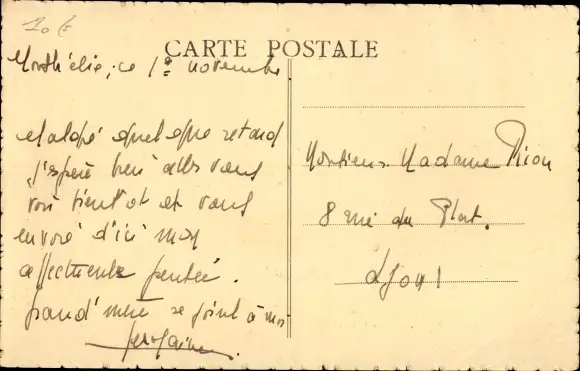 CARTE POSTALE
ce 1er novembre
Malgré quelque retard
j'espère bien aller vous
voir bientôt et vous
envoie d'ici mon
affectueuse pensée.
grand'mère se joint à moi
Monsieur Madame Riou
8 rue du Plat.
Lyon